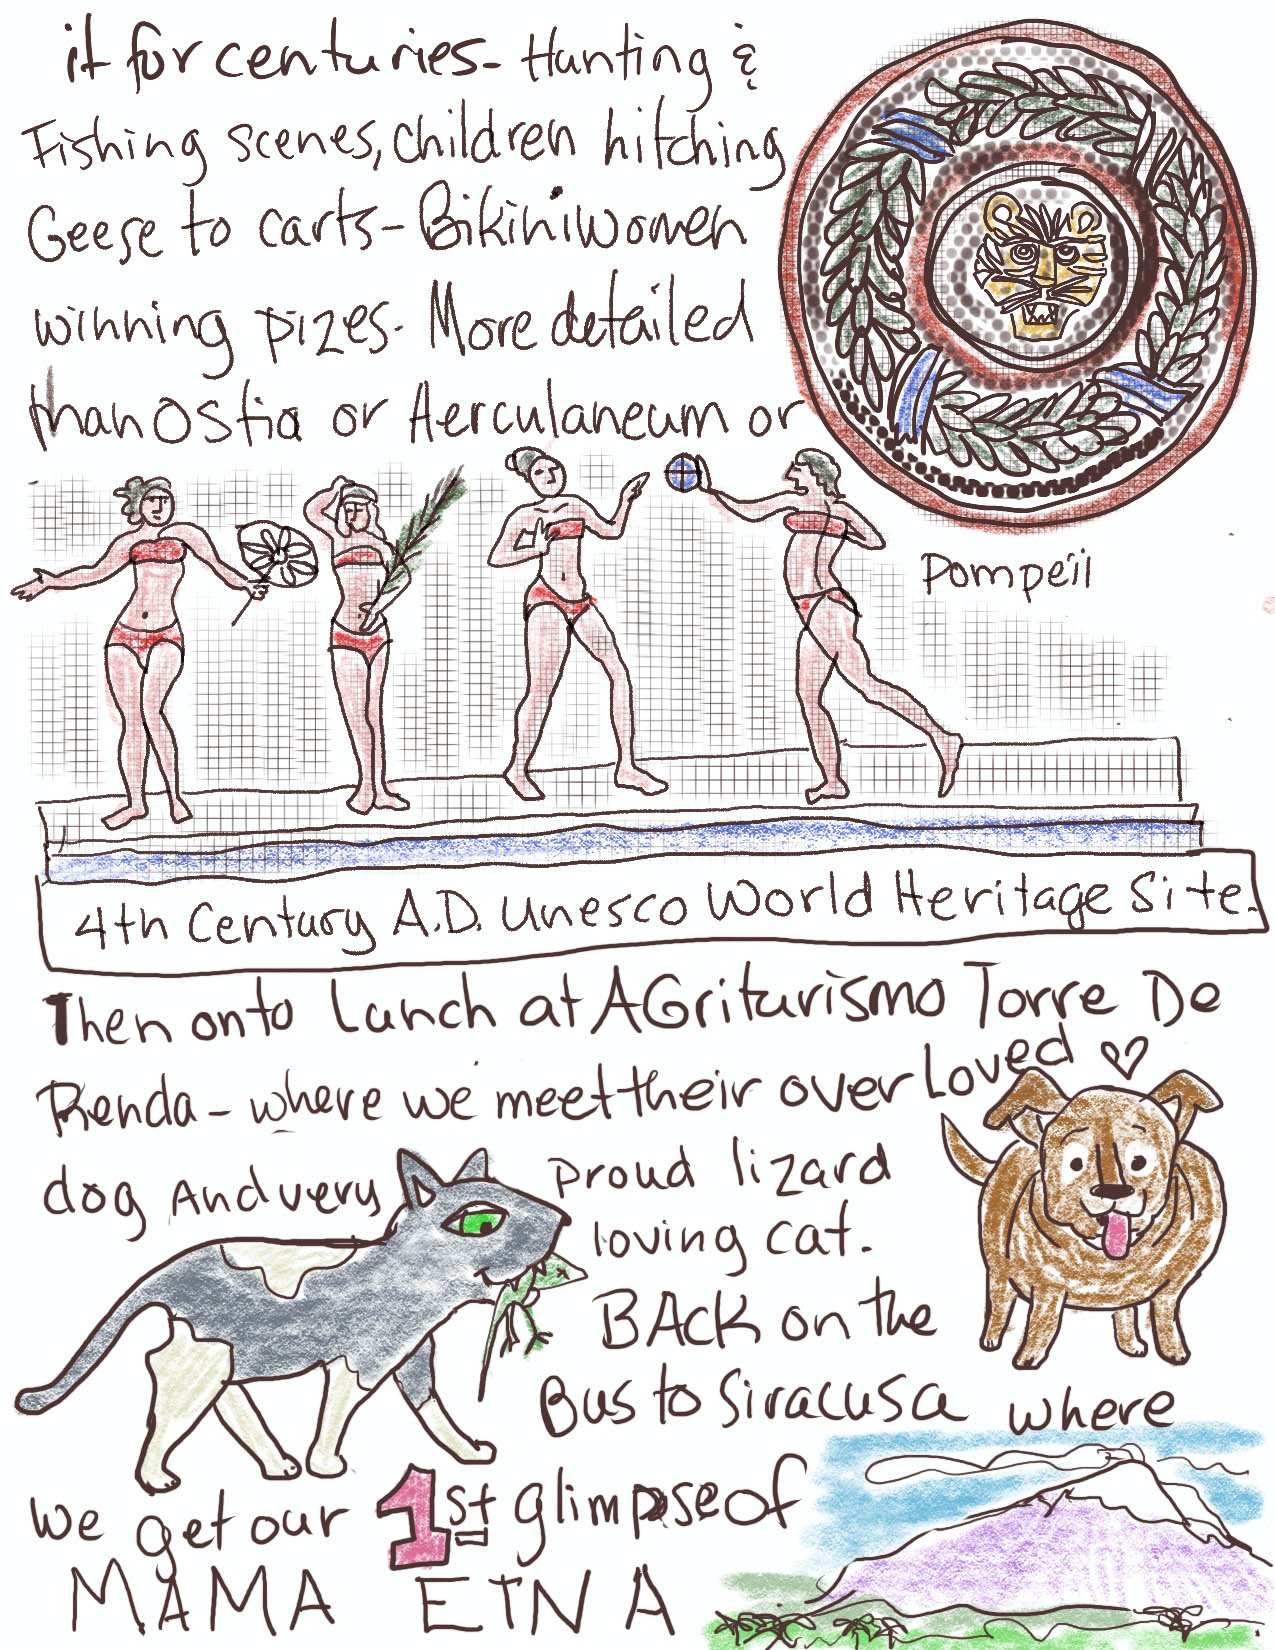 it for centuries - Hunting &
Fishing scenes, children hitching
Geese to carts - Bikini women
winning pizes. More detailed
than Ostia or Herculaneum or
Pompeii
4th Century A.D. Unesco World Heritage Site.
Then onto Lunch at AGriturismo Torre De
Renda - where we meet their over Loved
dog And very proud lizard
loving cat.
BACK on the
Bus to Siracusa where
we get our 1st glimpse of
MAMA ETNA